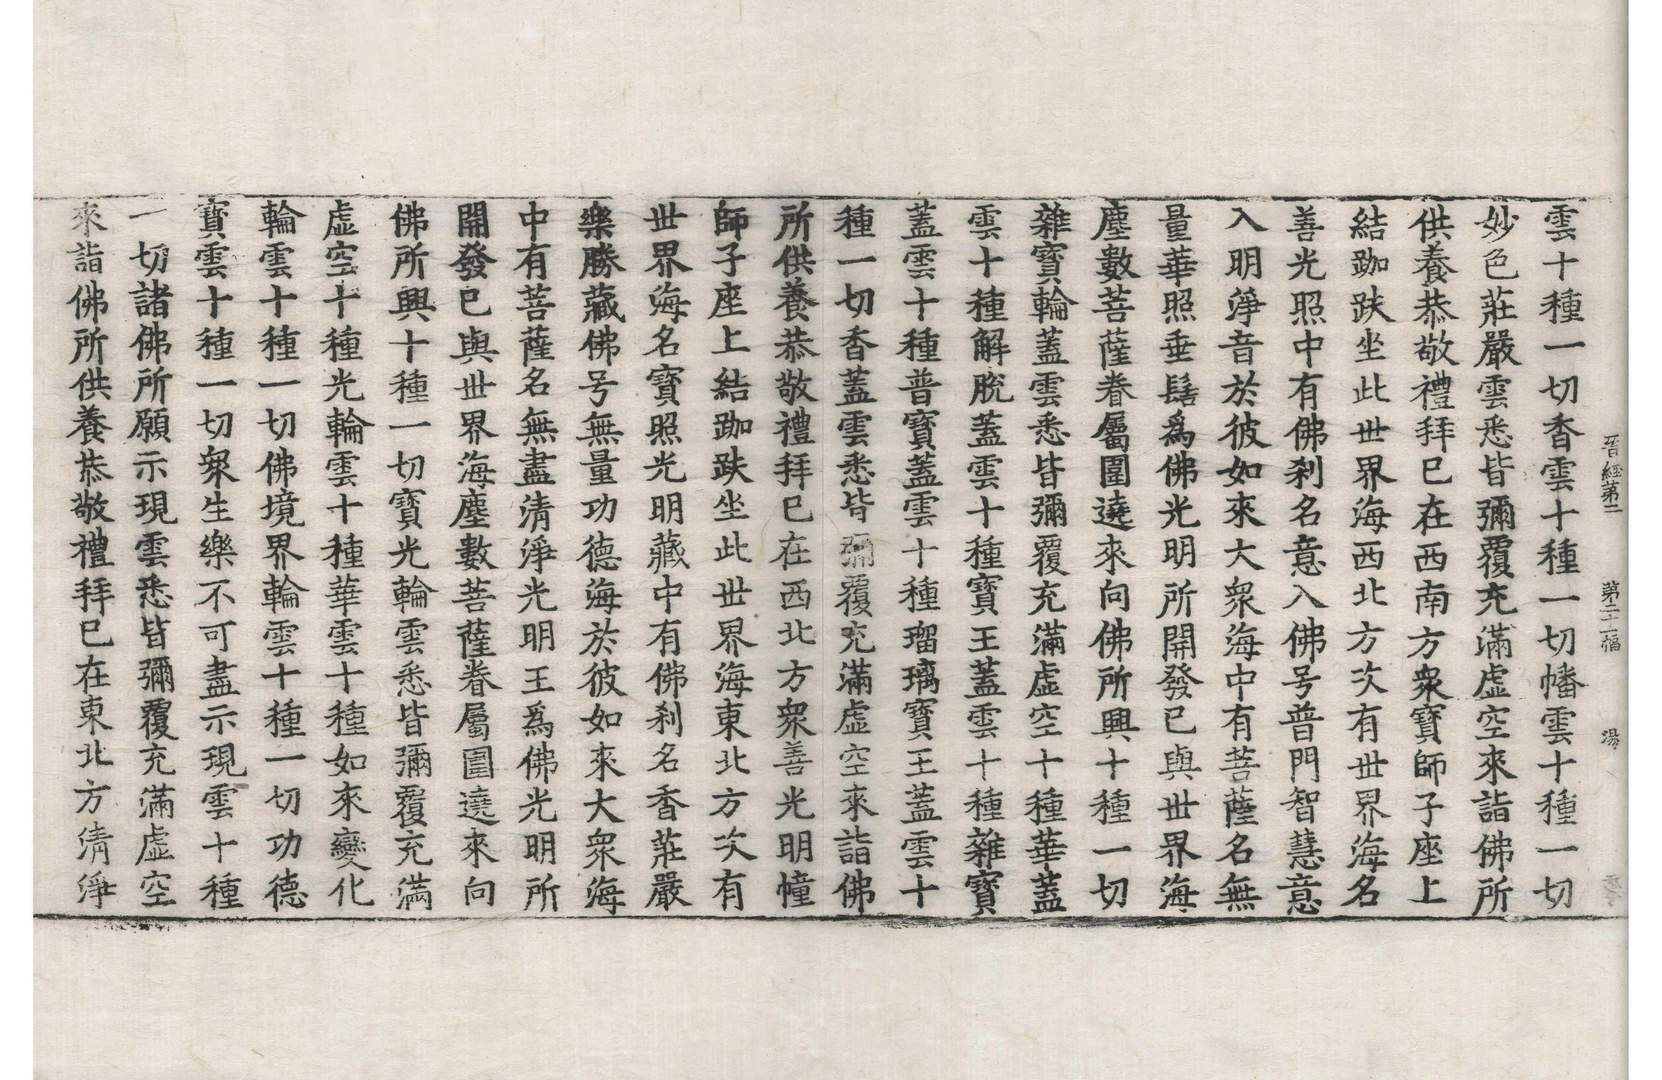 晉經第二 第二十一幅 湯
雲十種一切香雲十種一切幡雲十種一切
妙色莊嚴雲悉皆彌覆充滿虛空來詣佛所
供養恭敬禮拜已在西南方衆寶師子座上
結跏趺坐此世界海西北方次有世界海名
善光照中有佛刹名意入佛号普門智慧意
入明淨音於彼如來大衆海中有菩薩名無
量華照垂髻爲佛光明所開發已與世界海
塵數菩薩眷屬圍遶來向佛所興十種一切
雜寶輪蓋雲悉皆彌覆充滿虛空十種華蓋
雲十種解脫蓋雲十種寶王蓋雲十種雜寶
蓋雲十種普寶蓋雲十種瑠璃寶王蓋雲十
種一切香蓋雲悉皆彌覆充滿虛空來詣佛
所供養恭敬禮拜已在西北方衆善光明幢
師子座上結跏趺坐此世界海東北方次有
世界海名寶照光明藏中有佛刹名香莊嚴
樂勝藏佛号無量功德海於彼如來大衆海
中有菩薩名無盡清淨光明王爲佛光明所
開發已與世界海塵數菩薩眷屬圍遶來向
佛所興十種一切寶光輪雲悉皆彌覆充滿
虛空十種光輪雲十種華雲十種如來變化
輪雲十種一切佛境界輪雲十種一切功德
寶雲十種一切衆生樂不可盡示現雲十種
一切諸佛所願示現雲悉皆彌覆充滿虛空
來詣佛所供養恭敬禮拜已在東北方清淨